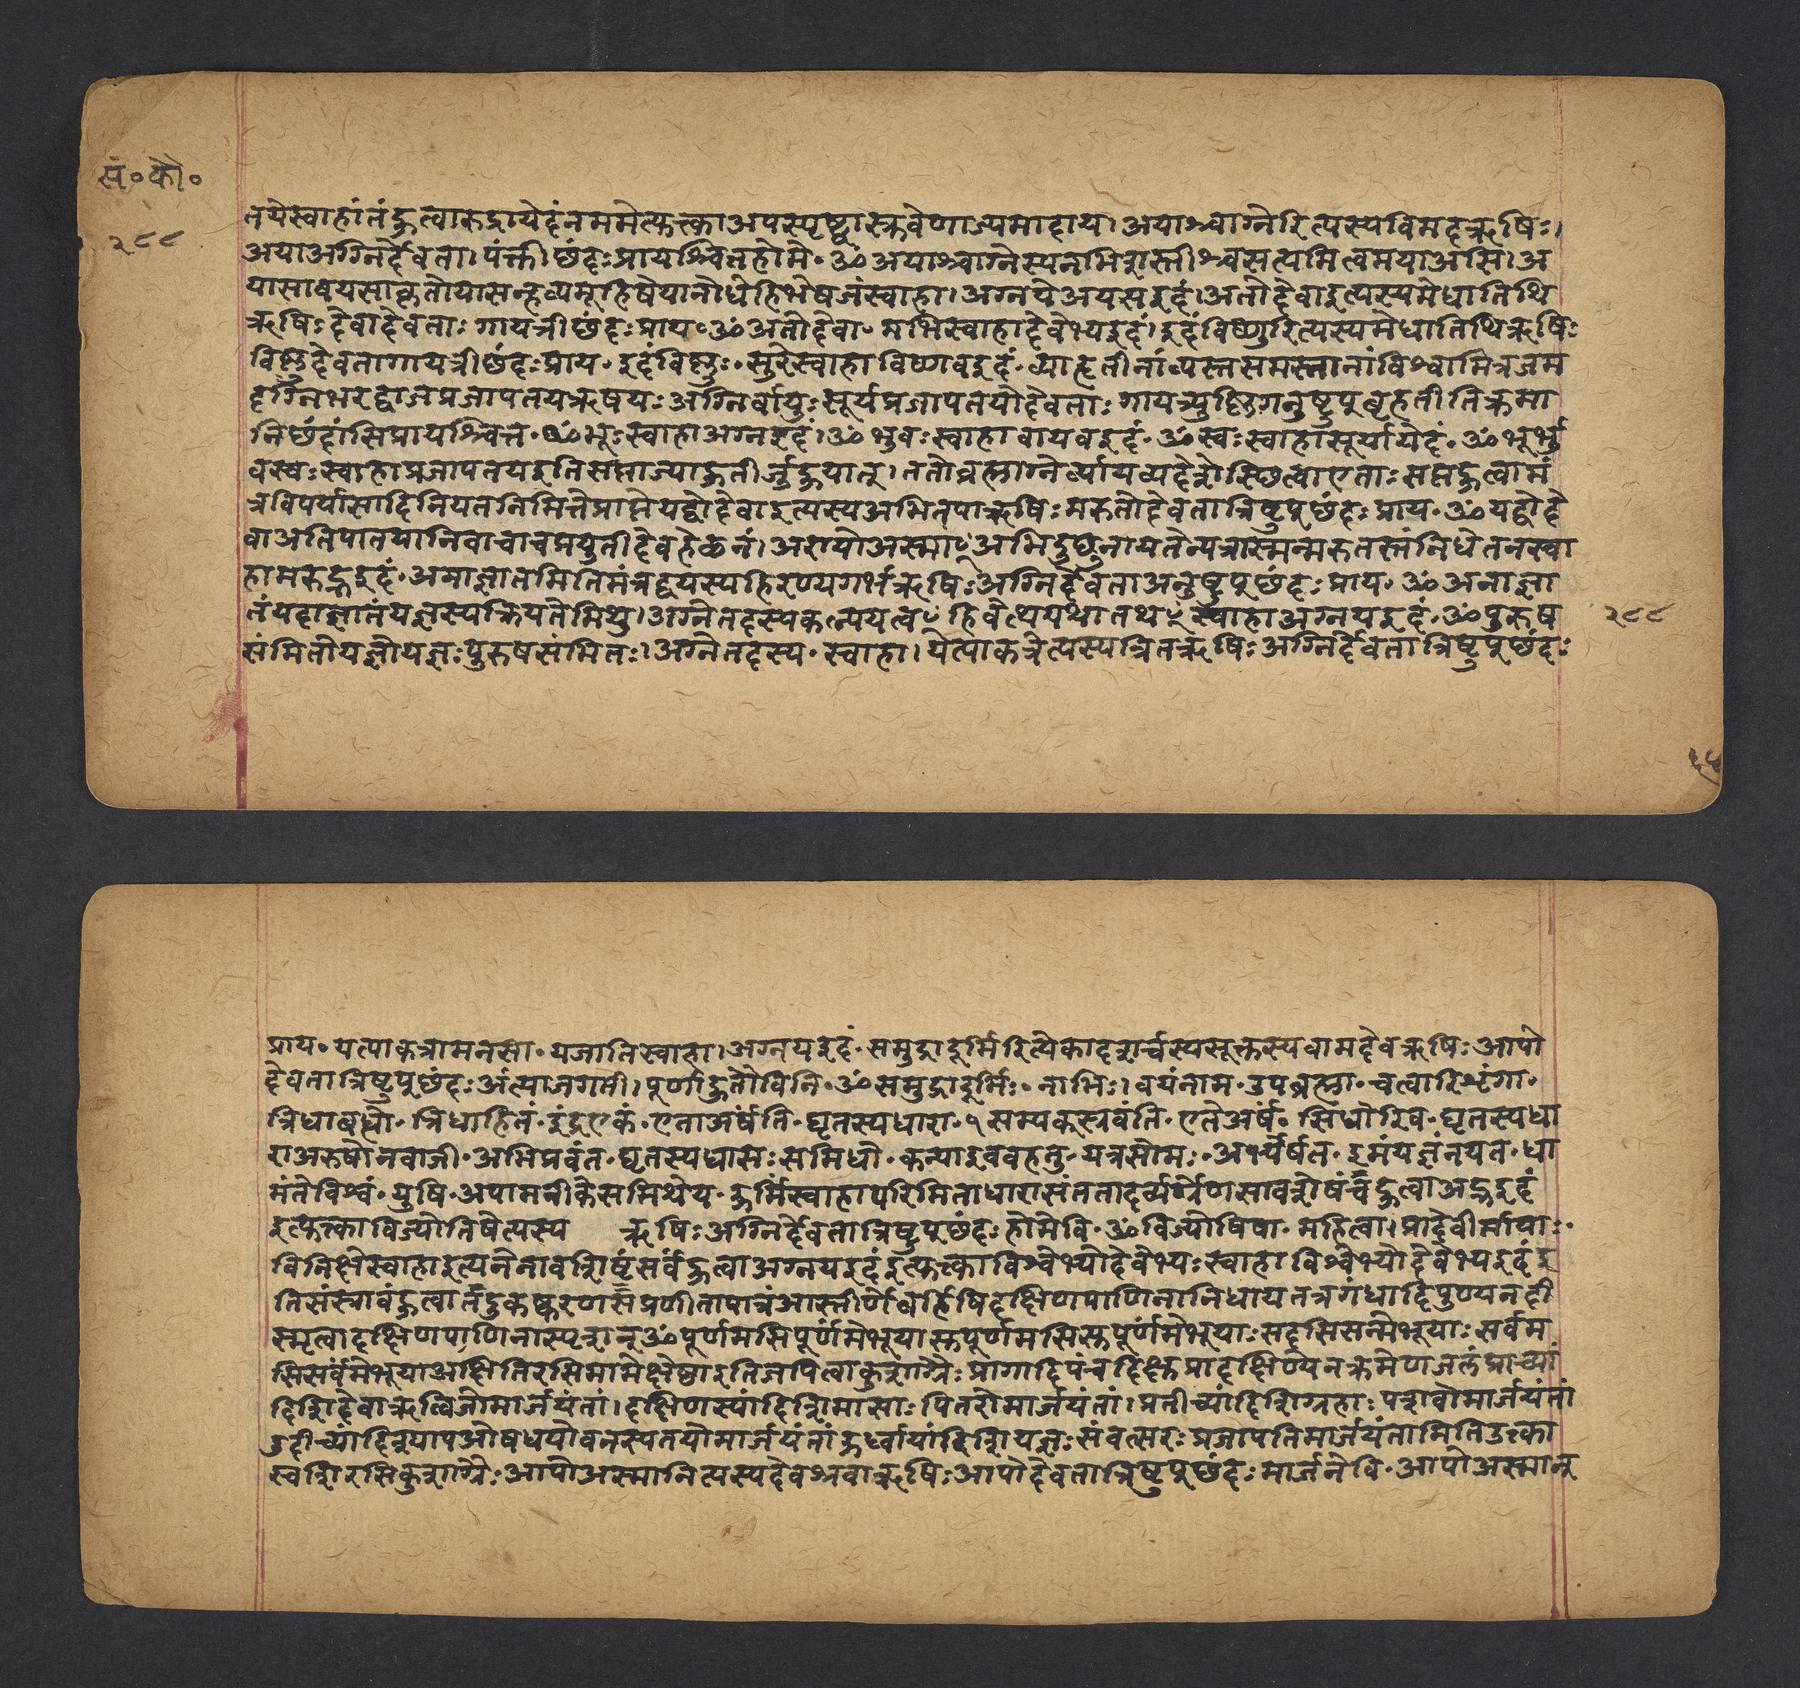 सं॰ कौ॰
२८८
तयेस्वाहांतंहुत्वारुद्रायेदंनममेत्युक्त्काअपस्पृष्ट्वास्रुवेणाज्यमादाय। अयाश्चाग्नेरित्यस्यविमदऋषिः।
अयाअग्निर्देवता। पंक्तीछंदःप्रायश्चित्तहोमे॰ ॐअयाश्चाग्नेस्यनभिशस्तीश्चसत्यमित्वमयाअसि। अ
यासावयसाकृतोयासन्हव्यमूहिषेयानोधेहिभेषजंस्वाहा। अग्नयेअयसइदं। अतोदेवाइत्यस्यमेधातिथि
ऋषिः देवादेवताः गायत्रीछंदः प्राय॰ॐअतोदेवा॰ मभिस्वाहादेवेभ्यइदं। इदंविष्णुरित्यस्यमेधातिथिऋषिः
विष्णुर्देवतागायत्रीछंदः प्राय॰ इदंविष्णुः॰ सुरेस्वाहाविष्णवइदं॰ व्याहृतीनांव्यस्तसमस्तानांविश्वामित्रजम
दग्निभरद्वाजप्रजापतयऋषयः अग्निर्वायुः सूर्यप्रजापतयोदेवताः गायत्र्युष्णिगनुष्टुप्बृहतीतिक्रमा
निछंदांसिप्रायश्चित्त॰ ॐभूःस्वाहाअग्नइदं। ॐभुवःस्वाहावायवइदं॰ ॐस्वःस्वाहासूर्यायेदं॰ ॐभूर्भु
वस्वःस्वाहाप्रजापतयइतिसप्ताज्याहुतीर्जुहुयात्। ततोब्रह्माग्नेर्व्यायव्यदेशेस्छित्वाएताःसप्तहुत्वामं
त्रविपर्यासादिनियतनिमित्तेप्राप्तेयद्वोदेवाइत्यस्यअभितपाऋषिः मरुतोदेवतात्रिष्टुप्छंदः प्राय॰ ॐयद्वोदे
वाअतिपातयानिवाचाचप्रयुतीदेवहेळनं। अरायोअस्माꣳअभिदुछुनायतेन्यत्रास्मन्मरुतस्तंनिधेतनस्वा
हामरुद्भ्यइदं॰ अनाज्ञातमितिमंत्रद्वयस्यहिरण्यगर्भऋषिः अग्निर्देवताअनुष्टुप्छंदः प्राय॰ ॐअनाज्ञा
तंयदाज्ञातंयज्ञस्यक्रियतेमिथु। अग्नेतदस्यकल्पयत्वꣳहिवेत्थयथातथꣳस्वाहाअग्नयइदं॰ ॐपुरुष
२८८
संमितोयज्ञोयज्ञः पुरुषसंमितः। अग्नेतदस्य॰ स्वाहा। यत्पाकत्रेत्यस्यत्रितऋषिः अग्निर्देवतात्रिष्टुप्छंदः
प्राय॰ यत्पाकत्रामनसा॰ यजातिस्वाहा। अग्नयइदं॰ समुद्रादूर्मिरित्येकादशर्चस्यसूक्तस्यवामदेवऋषिः आपो
देवतात्रिष्टुप्छंदः अंत्याजगती। पूर्णाहुतौविनि॰ ॐसमुद्रादूर्मिः॰ नाभिः। वयंनाम॰ उपब्रह्मा॰ चत्वारिशृंगा॰
त्रिधाबद्धो॰ त्रिधाहितं॰ इंद्रएकं॰ एताअर्षंति॰ घृतस्यधारा॰ १ सम्यक्स्त्रवंति॰ एतेअर्ष॰ सिंधोरिव॰ घृतस्यधा
राअरुषोनवाजी॰ अभिप्रवंत॰ घृतस्यधासः समिधो॰ कन्याइववहतु॰ यत्रसोमः॰ अभ्यर्षत॰ इमंयज्ञंनयत॰ धा
मंतेविश्वं॰ युषि॰ अपामनीकेसमिथेय॰ ऊर्मिंस्वाहापरिमिताधारासंततादर्व्यग्रेणसावशेषंचहुत्वाअद्भ्यइदं
इत्युक्त्काविज्योतिषेत्यस्य ऋषिः अग्निर्देवतात्रिष्टुप्छंदः होमेवि॰ ॐविज्योषिषा॰ महित्वा। प्रादेवीर्मायाः॰
विनिक्षेस्वाहाइत्यनेनावशिष्टंसर्वंहुत्वाअग्नयइदंइत्युक्त्काविश्वेभ्योदेवेभ्यः स्वाहाविश्वेभ्योदेवेभ्यइदंइ
तिसंस्त्रावंहुत्वातंदुकष्करणसंप्रणीतापात्रंआस्तीर्णेबर्हिषिदक्षिणपाणिनानिधायतत्रगंधादिपुण्यनदी
स्मृत्वादक्षिणपाणिनास्पृशन्ॐपूर्णमसिपूर्णंमेभूयास्तपूर्णमसिस्तपूर्णंमेभूयाः सदसिसन्मेभूयाः सर्वम
सिसर्वंमेभूयाअक्षितिरसिमामेक्षेष्ठारतिजपित्वाकुशाग्रैः प्रागादिपंचदिक्षुप्रादक्षिण्येनक्रमेणजलंप्राच्यां
दिशिदेवाऋत्विजोमार्जयंतां। दक्षिणस्यांदिशिमासाः पितरोमार्जयंतां। प्रतीच्यांदिशिगृहाः पशवोमार्जयंतां
उदीच्यांदिश्यापओषधयोवनस्पतयोमार्जयंतांऊर्ध्वायांदिशियज्ञः संवत्सरः प्रजापतिमार्जयंतामितिउत्का
स्वशिरसिकुशाग्रैः आपोअस्मानित्यस्यदेवश्रवाऋषिः आपोदेवतात्रिष्टुप्छंदः मार्जनेवि॰ आपोअस्मान्